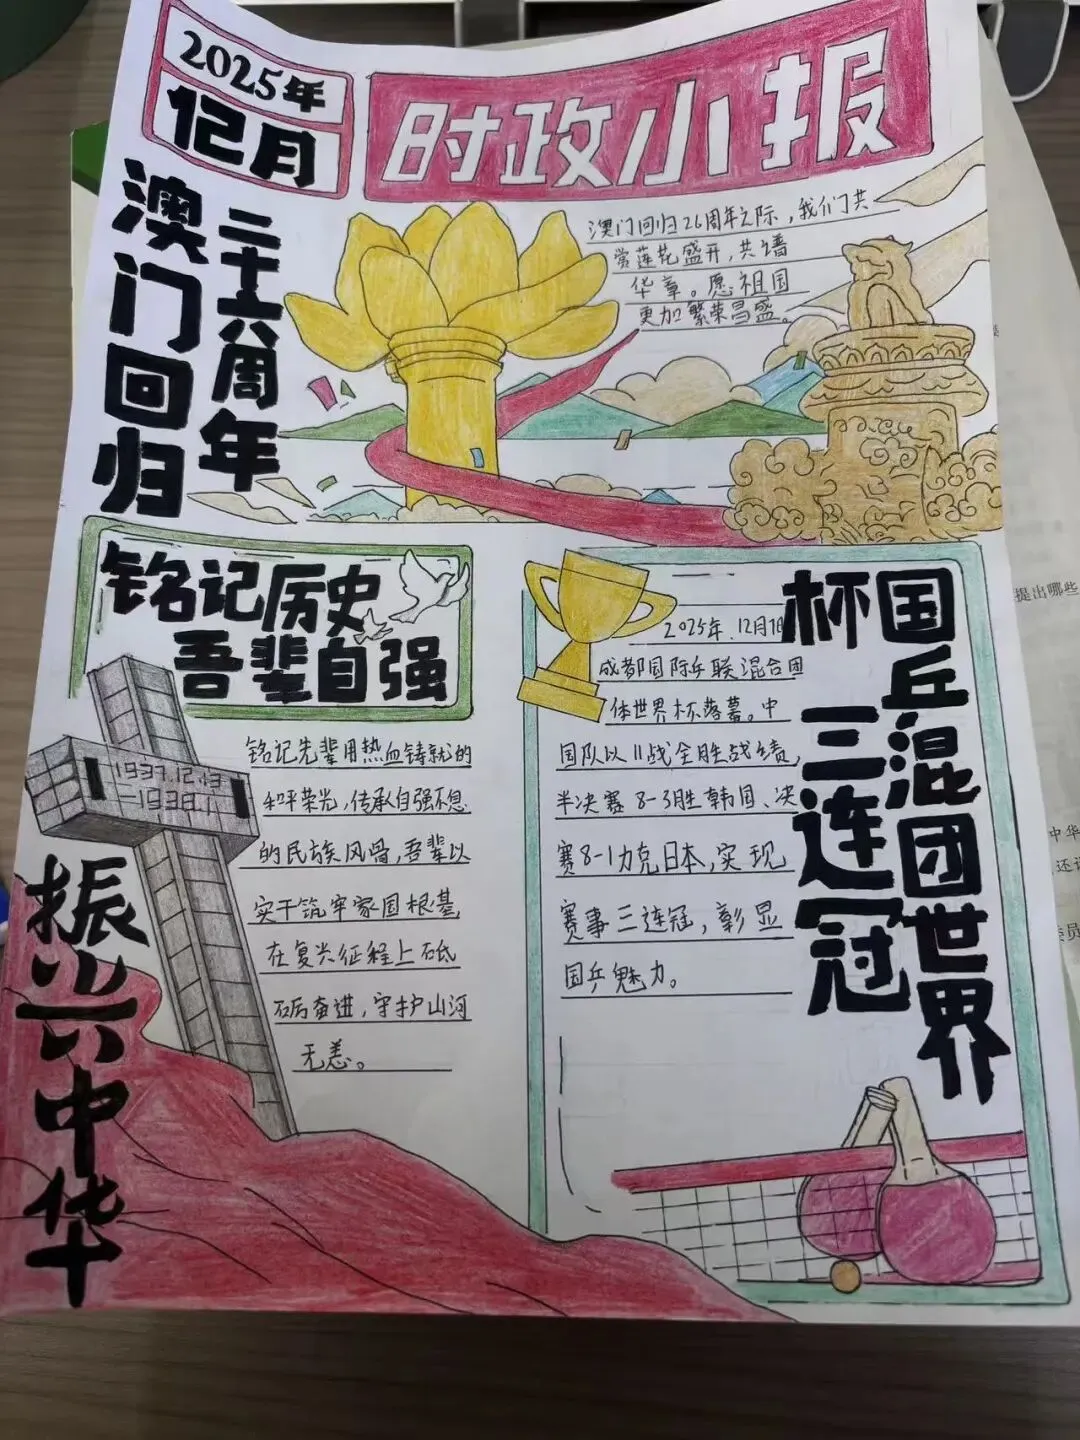 2025年
12月
时政小报
澳门回归
二十六周年
澳门回归26周年之际，我们共
赏莲花盛开，共谱
华章。愿祖国
更加繁荣昌盛。
铭记历史
吾辈自强
1937.12.13
—1938.1
铭记先辈用热血铸就的
和平荣光，传承自强不息
的民族风骨，吾辈以
实干筑牢家国根基，
在复兴征程上砥
砺奋进，守护山河
无恙。
振兴中华
国乒混团世界
杯三连冠
2025年12月7日
成都国际乒联混合团
体世界杯落幕。中
国队以11战全胜战绩，
半决赛8-3胜韩国、决
赛8-1力克日本，实现
赛事三连冠，彰显
国乒魅力。
提出哪些
中华
还讠
委员